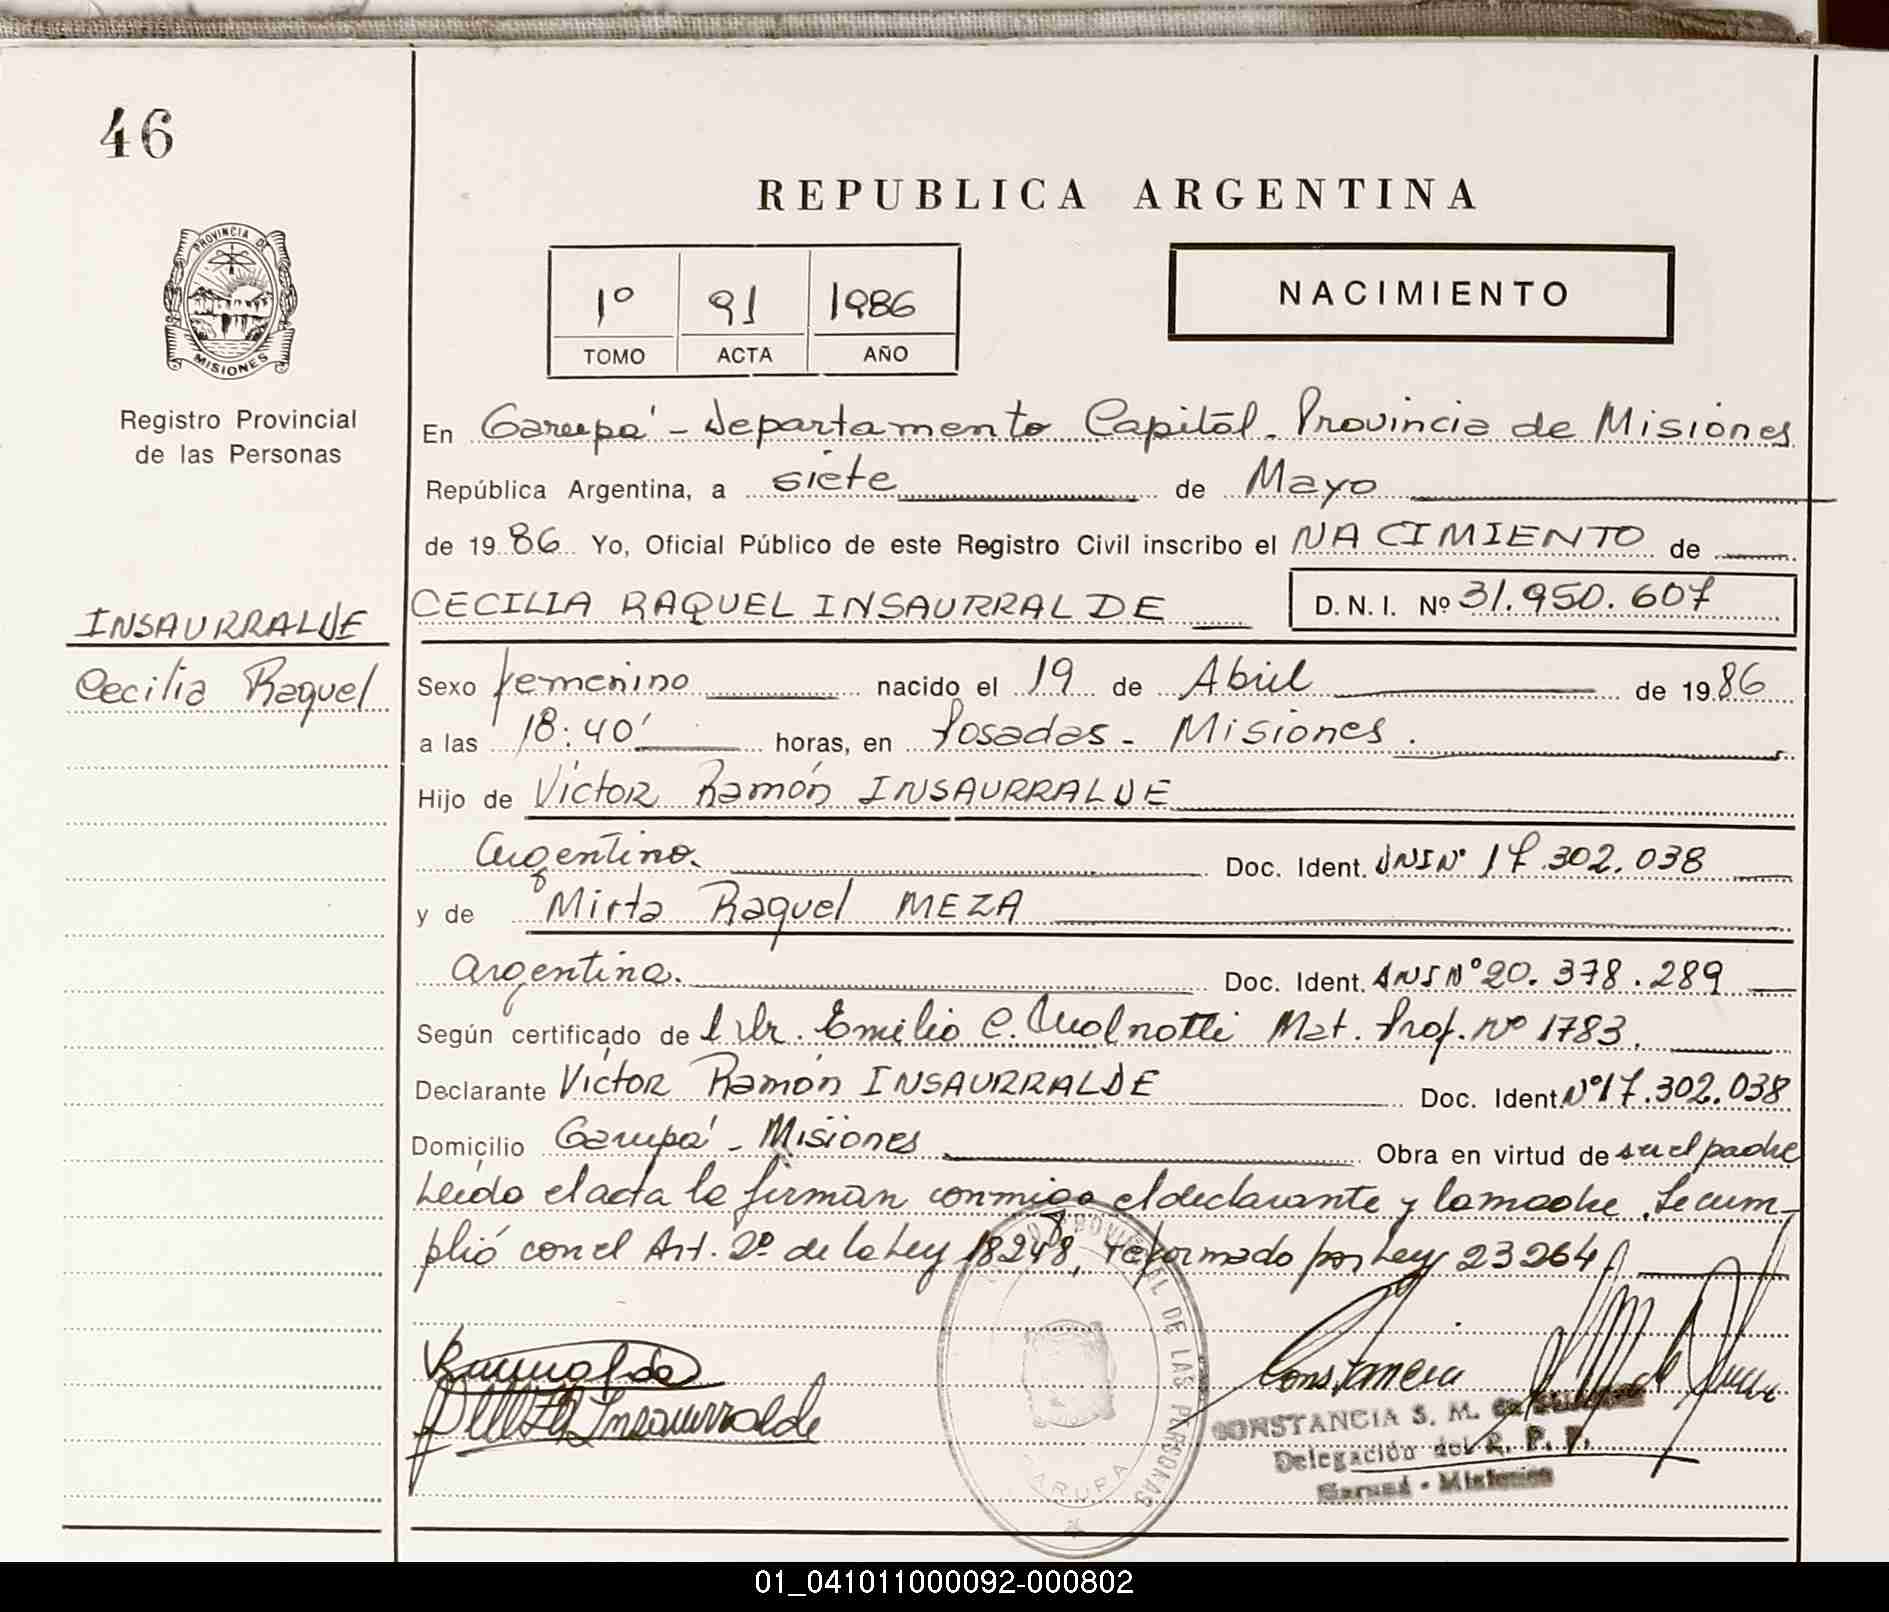 46
REPUBLICA ARGENTINA
PROVINCIA DE
MISIONES
1º 91 1986
TOMO ACTA AÑO
NACIMIENTO
Registro Provincial
de las Personas
En Garupá - Departamento Capital - Provincia de Misiones
República Argentina, a siete de Mayo
de 1986 Yo, Oficial Público de este Registro Civil inscribo el NACIMIENTO de
INSAURRALDE
Cecilia Raquel
CECILIA RAQUEL INSAURRALDE D.N.I. Nº 31.950.607
Sexo femenino nacido el 19 de Abril de 1986
a las 18:40' horas, en Posadas - Misiones.
Hijo de Víctor Ramón INSAURRALDE
Argentino. Doc. Ident. DNI Nº 17.302.038
y de Mirta Raquel MEZA
Argentina. Doc. Ident. DNI Nº 20.378.289
Según certificado de l Dr. Emilio C. Mat. Prof. Nº 1783.
Declarante Víctor Ramón INSAURRALDE Doc. Ident. Nº 17.302.038
Domicilio Garupá - Misiones Obra en virtud de ser el padre
Leída el acta la firman conmigo el declarante y la madre. Se cum-
plió con el Art. 2º de la Ley 18248, reformado por Ley 23264
PROVINCIAL DE LAS PERSONAS
GARUPA
Insaurralde
Constancia
CONSTANCIA S. M. de
Delegación del R. P. P.
Garupá - Misiones
01_041011000092-000802